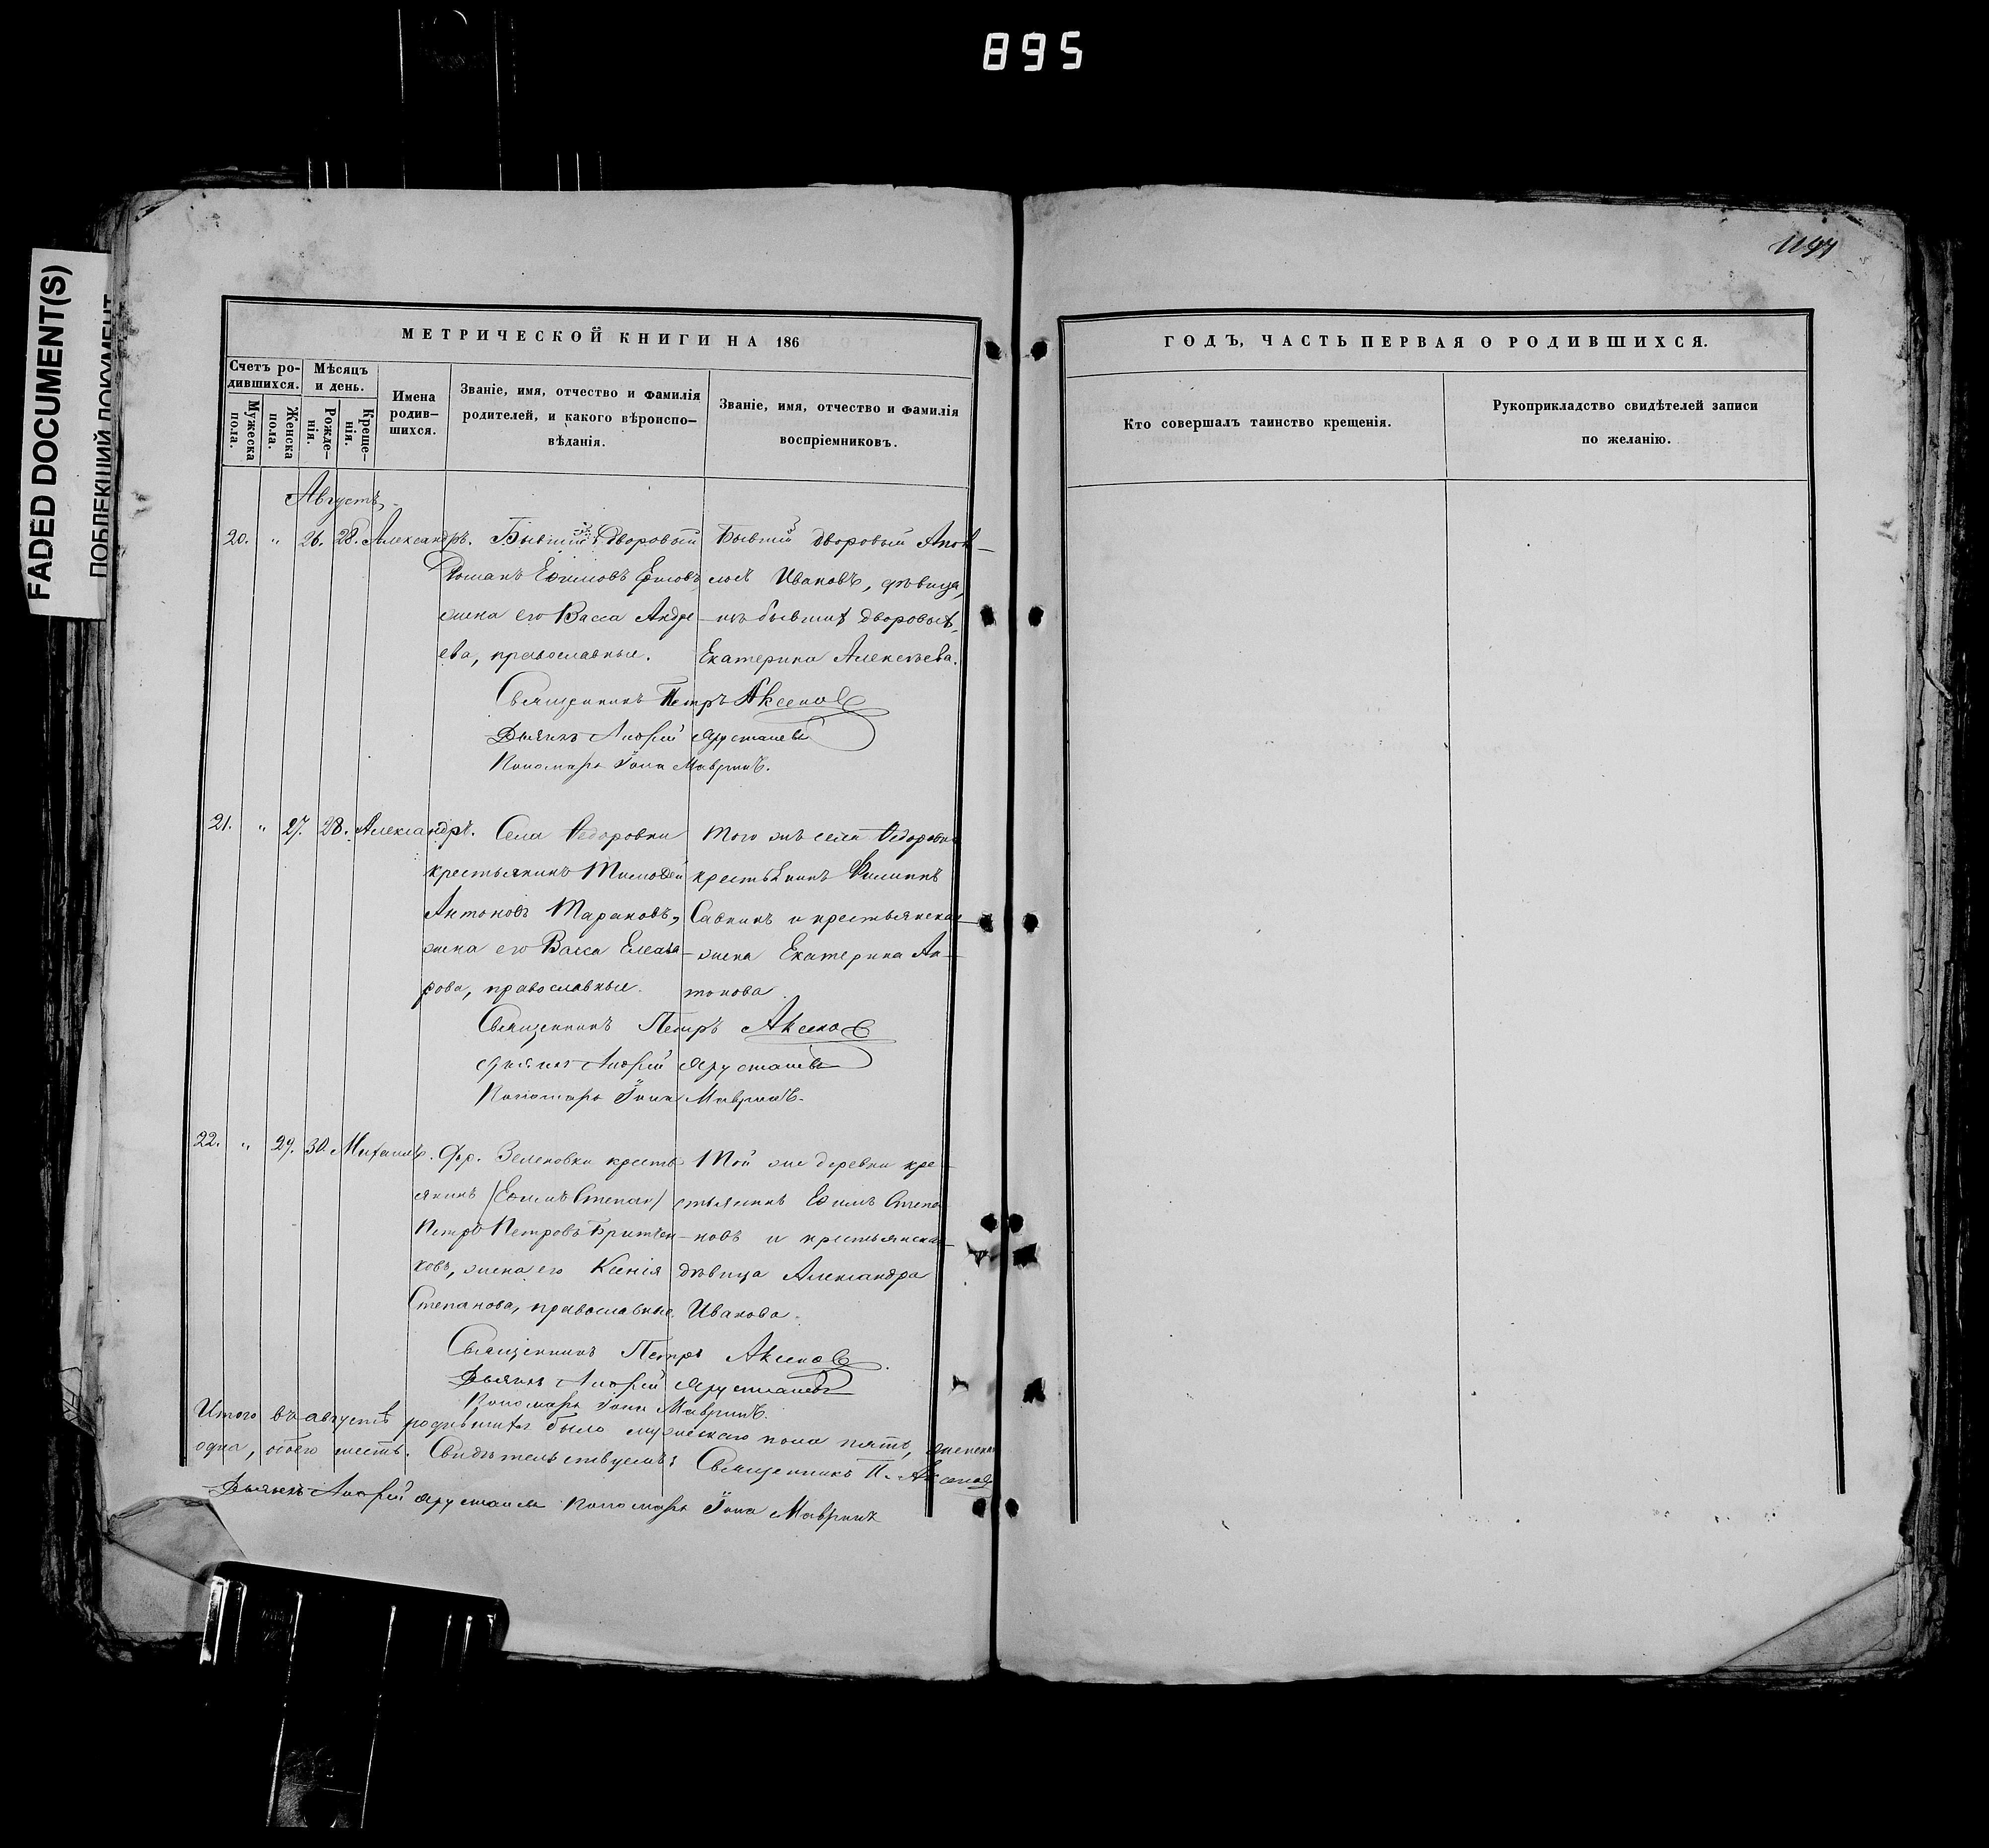 895
FADED DOCUMENT(S)
ПОБЛЕКШИЙ ДОКУМЕНТ
МЕТРИЧЕСКОЙ КНИГИ НА 186
Счетъ ро-
дившихся.
Мужеска
пола.
Женска
пола.
Мѣсяцъ
и день.
Рожде-
нія.
Креще-
нія.
Имена
родив-
шихся.
Званіе, имя, отчество и фамилія
родителей, и какого вѣроиспо-
вѣданія.
Званіе, имя, отчество и фамилія
воспріемниковъ.
Августъ
20. " 26. 28. Александръ. Бывшій дворовый
Романъ Ефимовъ
жена его Васса Андре-
ева, православные.
Бывшій дворовый
Ивановъ, дѣвица,
изъ бывшихъ дворовыхъ,
Екатерина Алексѣева.
Священникъ Петръ Аксенов
Дьячкъ Андрей
Пономарь Іона Мавринъ.
21. " 27. 28. Александръ. Села Ѳедоровки
крестьянинъ Тимоѳей
Антоновъ Тарановъ,
жена его Васса Елеаза-
рова, православные.
Того жъ села Ѳедоровки
крестьянинъ Филиппъ
Савкинъ и крестьянская
жена Екатерина Ан-
тонова
Священникъ Петръ Аксенов
Дьячкъ Андрей
Пономарь Іона Мавринъ.
22. " 29. 30. Михаилъ. Дер. Зеленовки кресть-
янинъ (Ефимъ Степан)
Петръ Петровъ
жена его Ксенія
Степанова, православные.
Той же деревни кре-
стьянинъ Ефимъ Степа-
новъ и крестьянская
дѣвица Александра
Иванова.
Священникъ Петръ Аксенов
Дьячкъ Андрей
Пономарь Іона Мавринъ.
Итого въ августѣ родившихся было мужескаго пола пять, женска
одна, обоего шесть. Свидѣтельствуемъ: Священникъ П. Аксенов
Дьячкъ Андрей Пономарь Іона Мавринъ
ГОДЪ, ЧАСТЬ ПЕРВАЯ О РОДИВШИХСЯ.
Кто совершалъ таинство крещенія.
Рукоприкладство свидѣтелей записи
по желанію.